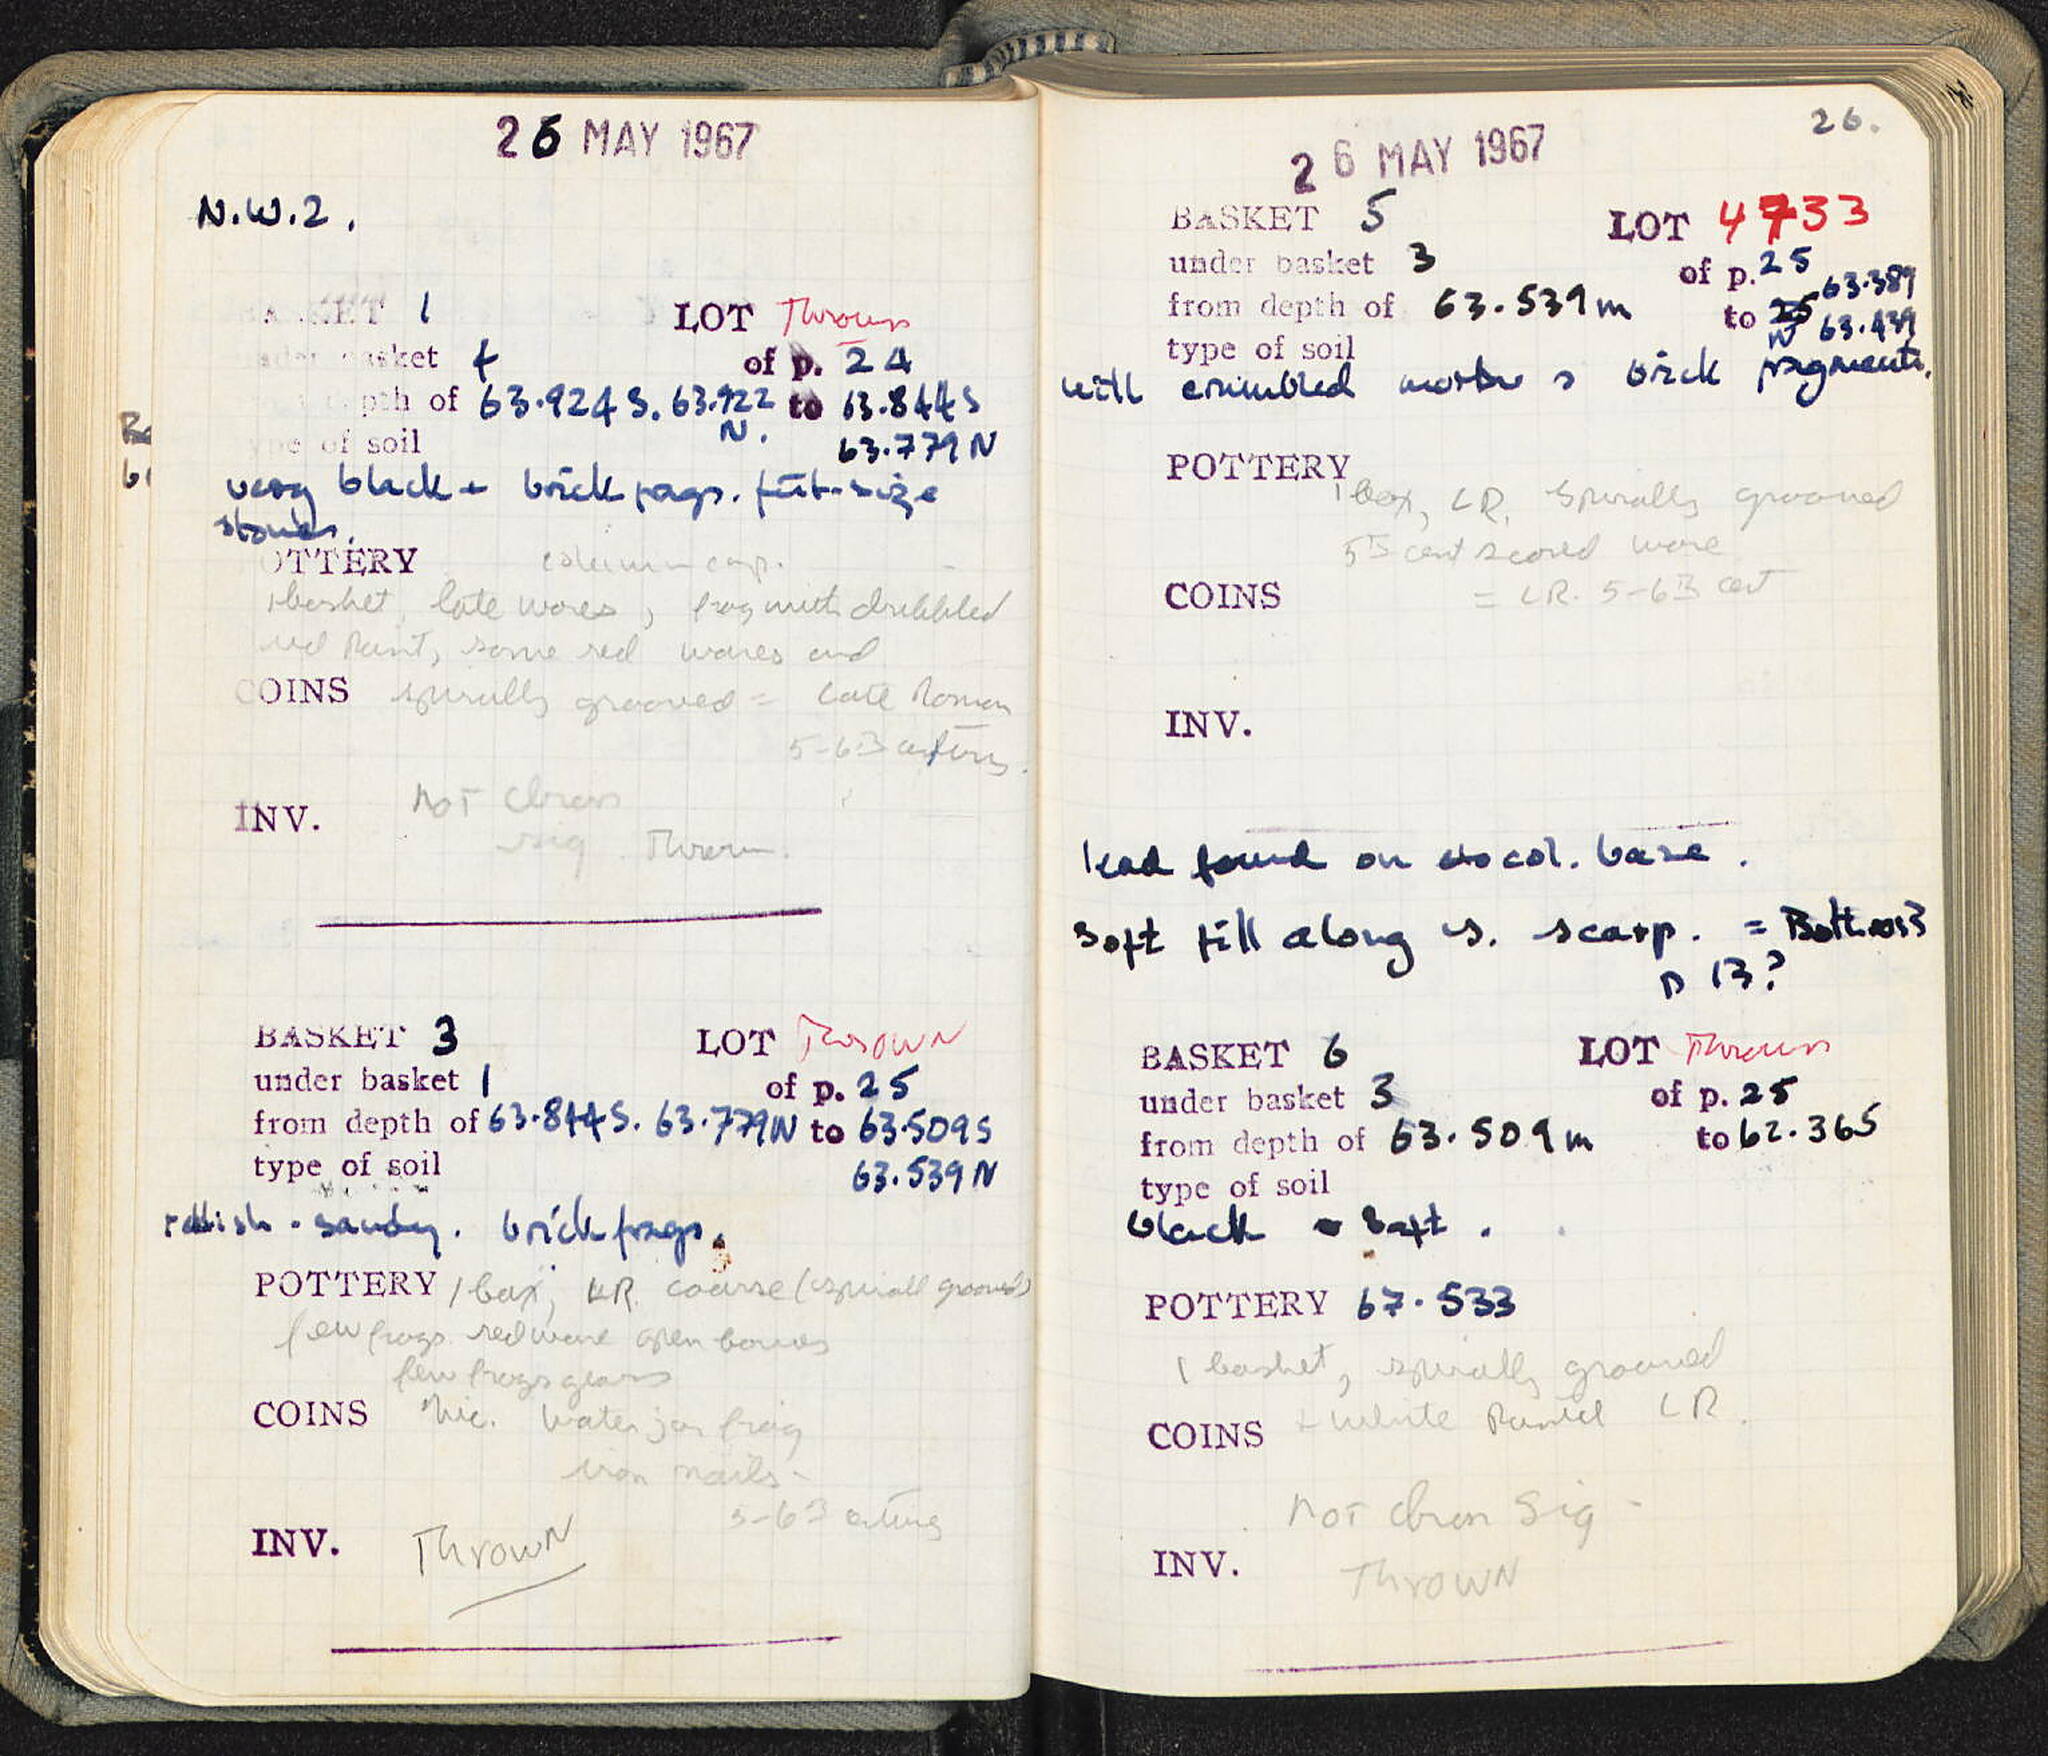 26 MAY 1967
N.W.2.
BASKET 1 LOT Thrown
under basket 4 of p. 24
from depth of 63.924 S. 63.922 N. to 63.844 S
63.779 N
type of soil
very black + brick frags. fist-size
stones.
POTTERY column cap.
1 basket, late wares, frag with dribbled
red paint, some red wares and
COINS spirally grooved = Late Roman
5-6th century.
INV. not chron
sig Thrown.
BASKET 3 LOT THROWN
under basket 1 of p. 25
from depth of 63.844 S. 63.779 N to 63.509 S
type of soil 63.539 N
reddish - sandy. brick frags.
POTTERY 1 box, LR. coarse (spirall grooved)
few frags. red ware open bowls
few frags glass
COINS Mic. water jar frag
iron nails -
5-6th century
INV. Thrown
26.
26 MAY 1967
BASKET 5 LOT 4733
under basket 3 of p. 25
from depth of 63.539 m to 63.389
63.439
type of soil
with crumbled mortar + brick fragments.
POTTERY
1 box, LR. spirally grooved
5th cent scored ware
COINS = LR. 5-6th cent
INV.
lead found on col. base.
Soft fill along s. scarp. =
p 13?
BASKET 6 LOT Thrown
under basket 3 of p. 25
from depth of 63.509 m to 62.365
type of soil
black soft.
POTTERY 67.533
1 basket, spirally grooved
COINS + white painted LR.
not chron sig -
INV. THROWN